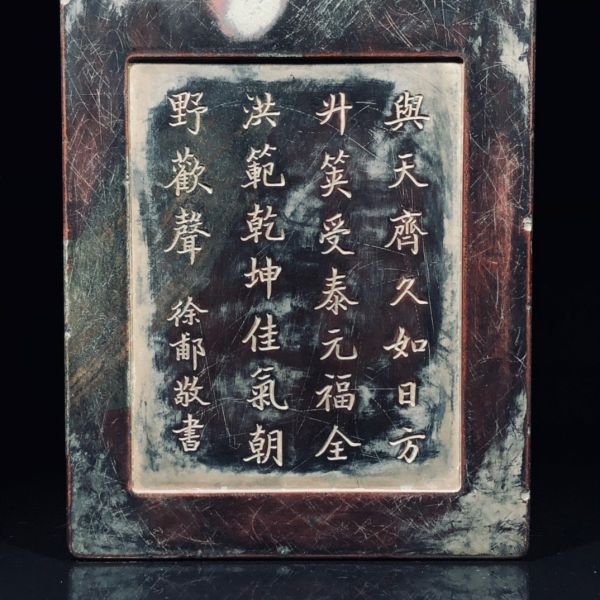 與天齊久如日方
升筴受泰元福全
洪範乾坤佳氣朝
野歡聲 徐郙敬書